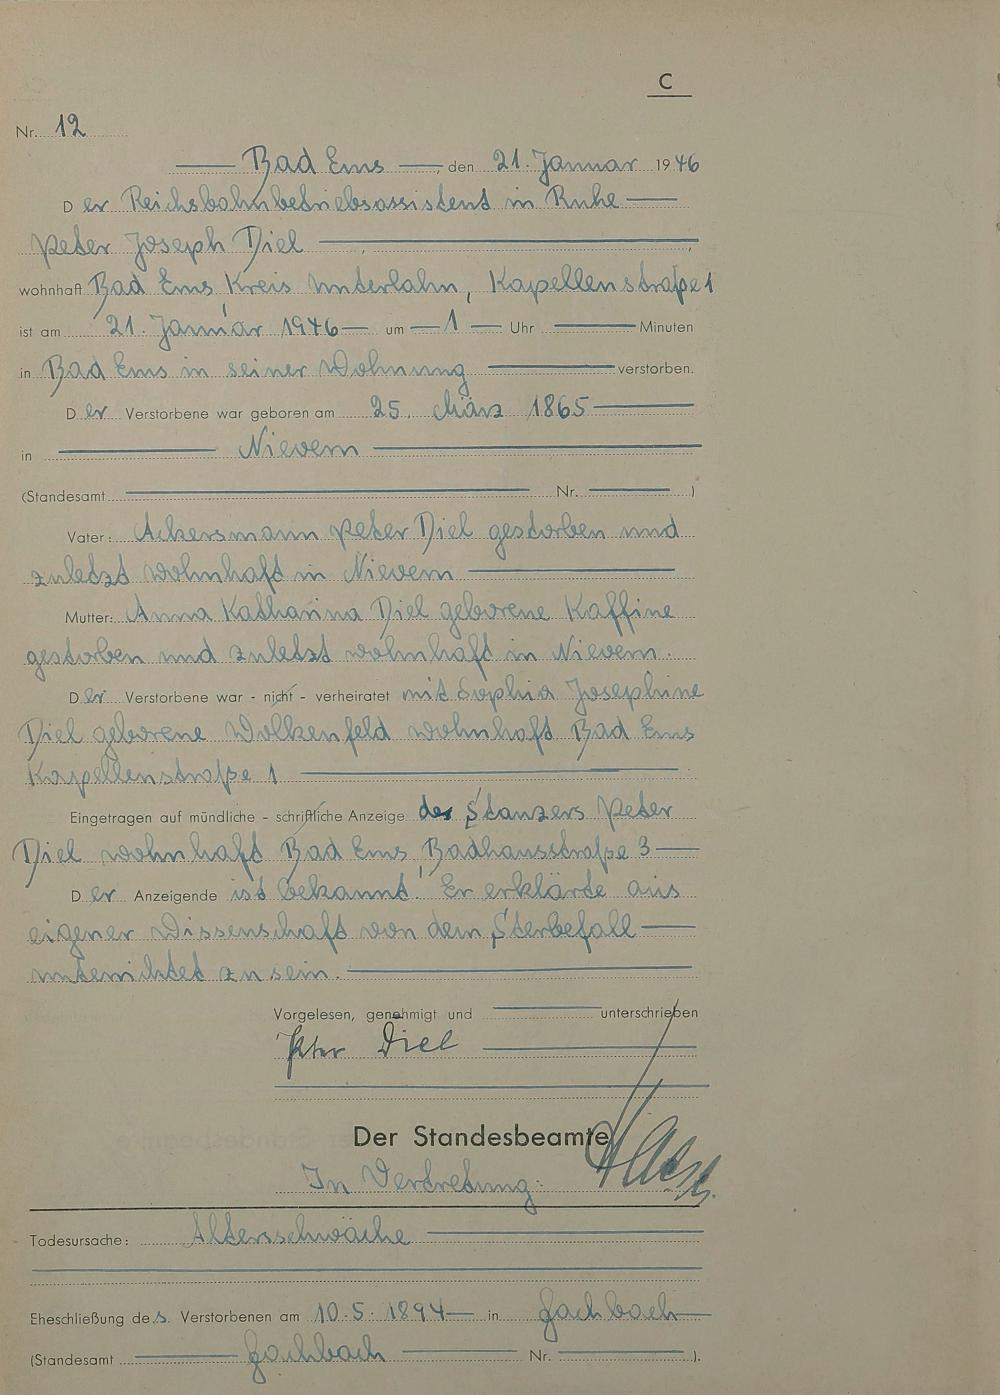 C
Nr. 12
Bad Ems, den 21. Januar 1946
Der Reichsbahnbetriebsassistent in Ruhe
Peter Joseph Diel
wohnhaft Bad Ems Kreis Unterlahn, Kapellenstraße 1
ist am 21. Januar 1946 um 1 Uhr Minuten
in Bad Ems in seiner Wohnung verstorben.
Der Verstorbene war geboren am 25. März 1865
in Nievern
(Standesamt Nr. )
Vater: Ackersmann Peter Diel gestorben und
zuletzt wohnhaft in Nievern
Mutter: Anna Katharina Diel geborene Kaffine
gestorben und zuletzt wohnhaft in Nievern.
Der Verstorbene war - nicht - verheiratet mit Sophia Josephine
Diel geborene Wolkenfeld wohnhaft Bad Ems
Kapellenstraße 1
Eingetragen auf mündliche - schriftliche Anzeige des Stanzers Peter
Diel wohnhaft Bad Ems, Badhausstraße 3
Der Anzeigende ist bekannt. Er erklärte aus
eigener Wissenschaft von dem Sterbefall
unterrichtet zu sein.
Vorgelesen, genehmigt und unterschrieben
Peter Diel
Der Standesbeamte
In Vertretung:
Todesursache: Altersschwäche
Eheschließung des Verstorbenen am 10.5.1894 in Fachbach
(Standesamt Fachbach Nr. ).